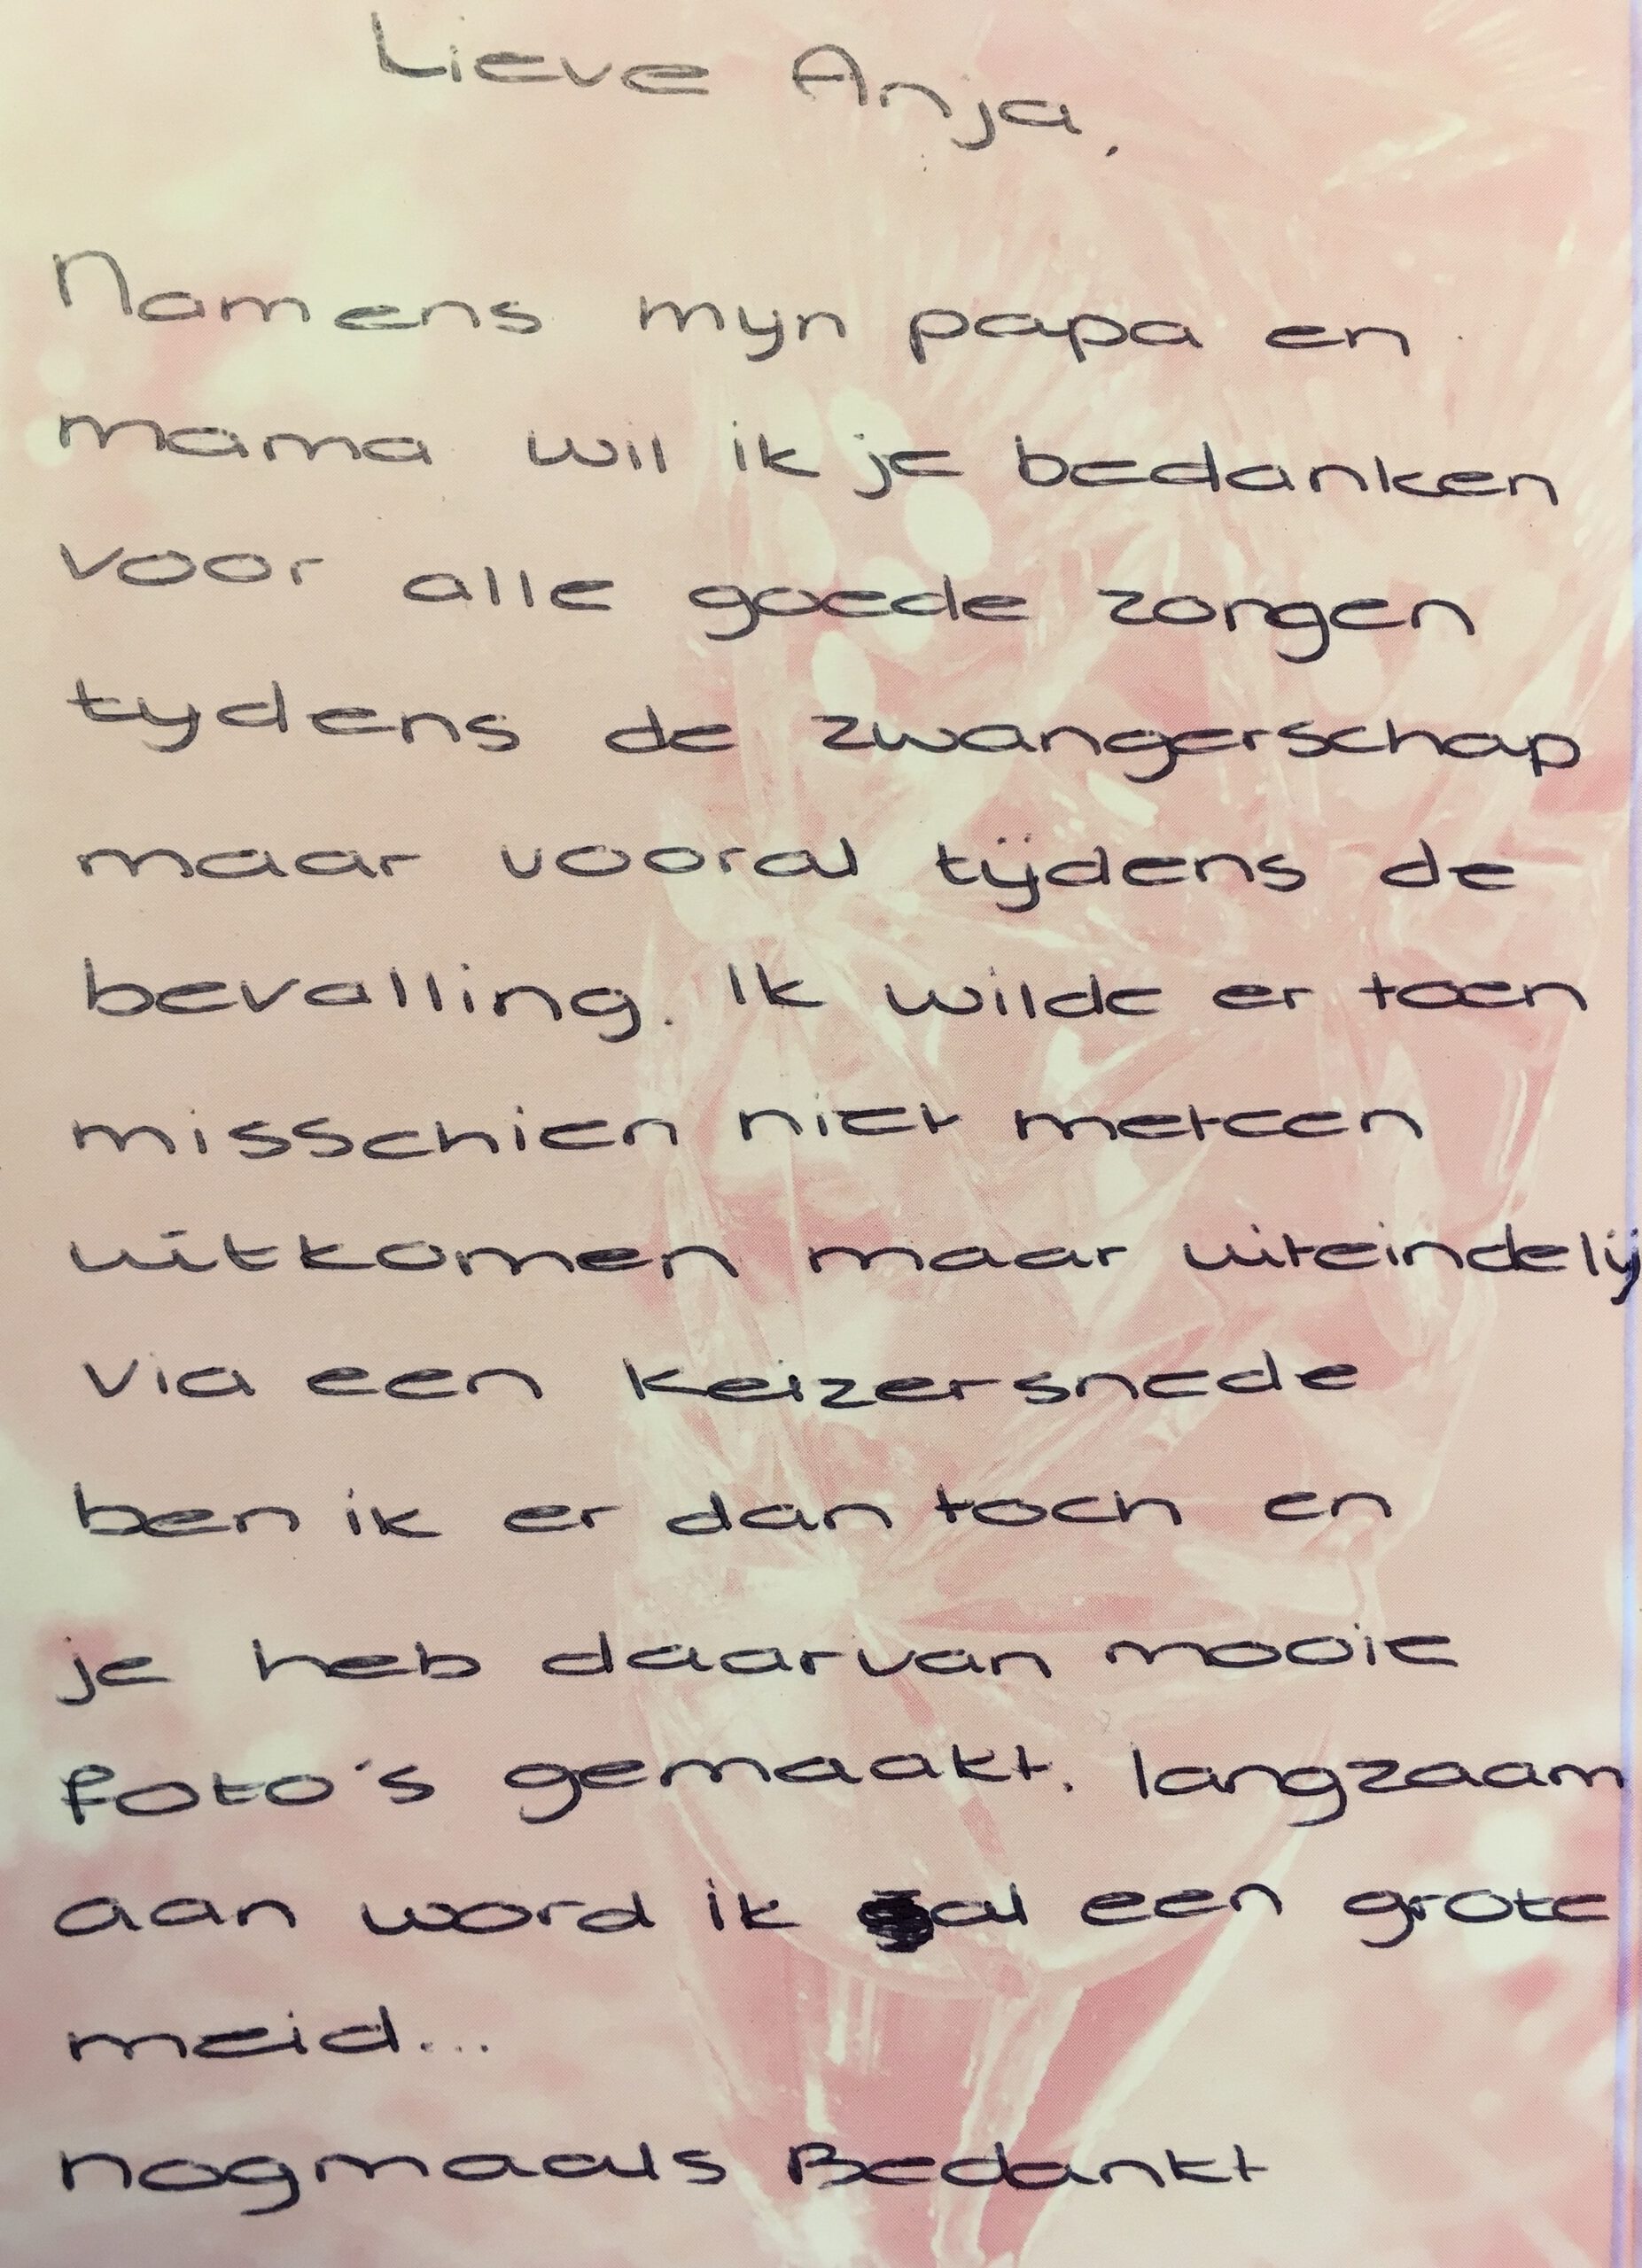 Lieve Anja,
Namens myn papa en
mama wil ik je bedanken
voor alle goede zorgen
tydens de zwangerschap
maar vooral tijdens de
bevalling. Ik wilde er toen
misschien niet meteen
uitkomen maar uiteindelij
via een keizersnede
ben ik er dan toch en
je heb daarvan mooie
foto's gemaakt. langzaam
aan word ik al een grote
meid...
nogmaals Bedankt